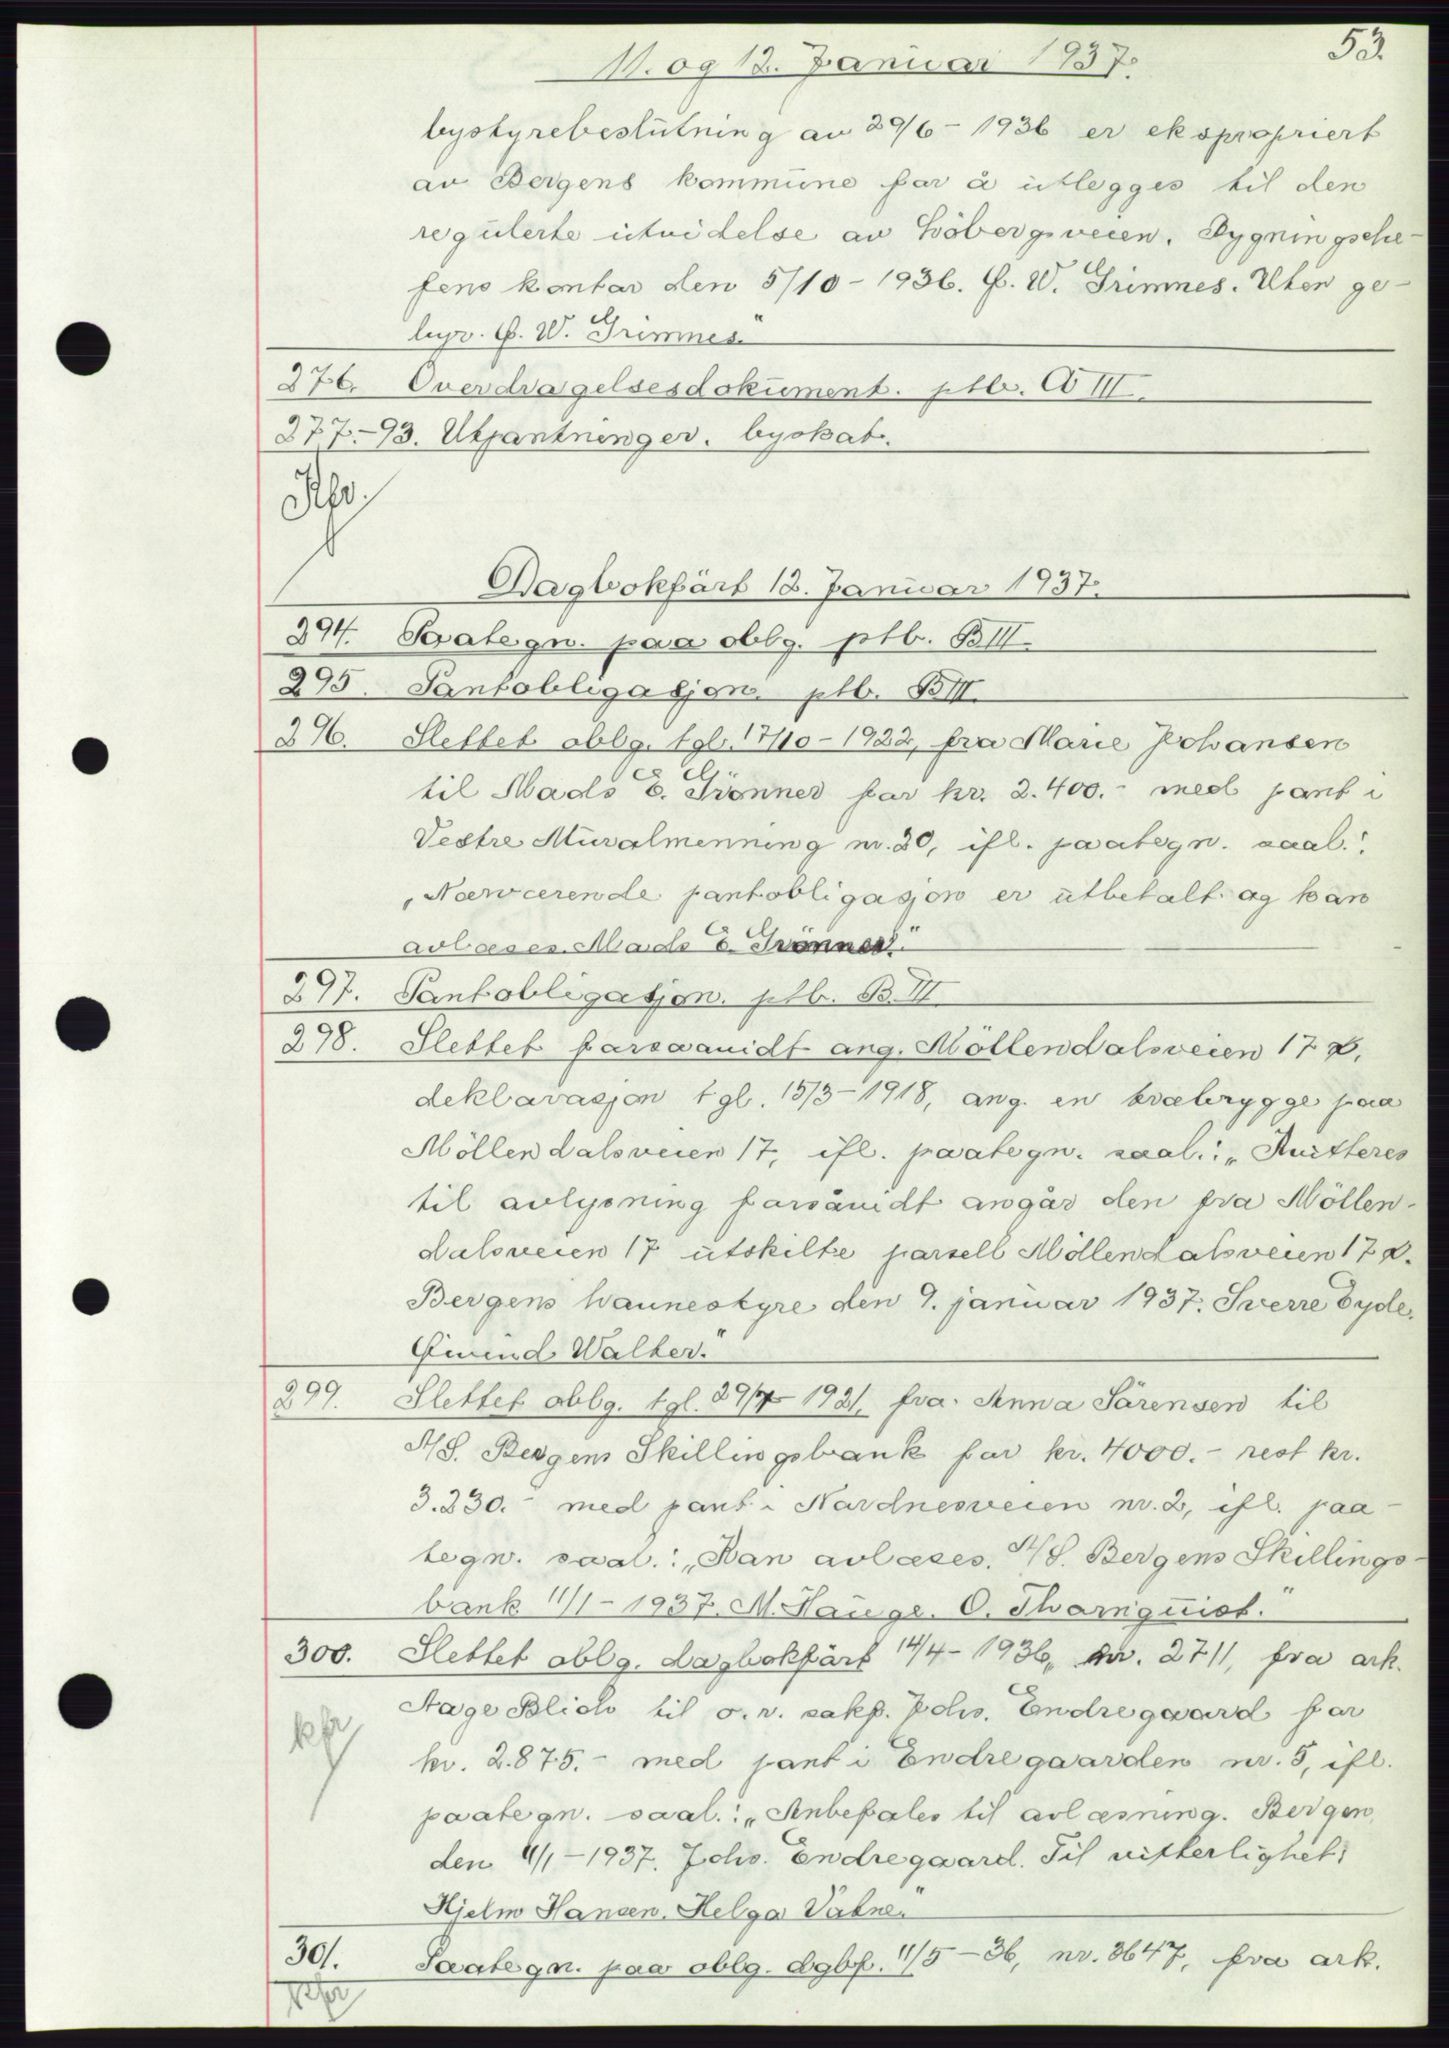 53.
11. og 12. Januar 1937.
bystyrebeslutning av 29/6 - 1936 er ekspropriert
av Bergens kommune for å utlegges til den
regulerte utvidelse av Löbergsveien. Bygningsche-
fens kontor den 5/10 - 1936. G. W. Grimnes. Uten ge-
byr. G. W. Grimnes."
276. Overdragelsesdokument. ptb. A III.
277.-93. Utpantninger. byskat.
Dagbokfört 12. Januar 1937.
294. Paategn. paa oblg. ptb. B III.
295. Pantobligasjon. ptb. B III.
296. Slettet oblg. tgl. 17/10 - 1922, fra Marie Johansen
til Mads E. Grönner for kr. 2.400.- med pant i
Vestre Muralmenning nr. 20, ifl. paategn. saal.:
„Nærværende pantobligasjon er utbetalt og kan
avlæses. Mads E. Grönner."
297. Pantobligasjon. ptb. B. III
298. Slettet forsaavidt ang. Möllendalsveien 17
deklarasjon tgl. 15/3 - 1918, ang. en træbrygge paa
Möllendalsveien 17, ifl. paategn. saal.: „Kvitteres
til avlysning forsåvidt angår den fra Möllen-
dalsveien 17 utskilte parsell Möllendalsveien 17
Bergens havnestyre den 9. januar 1937. Sverre Eyde.
Walter."
299. Slettet oblg. tgl. 29/7 - 1921, fra Anna Sörensen til
A/S. Bergens Skillingsbank for kr. 4000.- rest kr.
3.230.- med pant i Nordnesveien nr. 2, ifl. paa-
tegn. saal.: „Kan avlæses. A/S. Bergens Skillings-
bank 11/1 - 1937. M. Hauge. O. Thornquist."
300. Slettet oblg. dagbokfört 14/4 - 1936, nr. 2711, fra ark.
Aage Blich til o.r. sakf. Johs. Endregaard for
kr. 2.875.- med pant i Endregaarden nr. 5, ifl.
paategn. saal.: „Anbefales til avlæsning. Bergen,
den 11/1 - 1937. Johs. Endregaard. Til vitterlighet:
Hjelm Hansen. Helga Vatne."
301. Paategn. paa oblg. dgbf. 11/5 - 36, nr. 3647, fra ark.